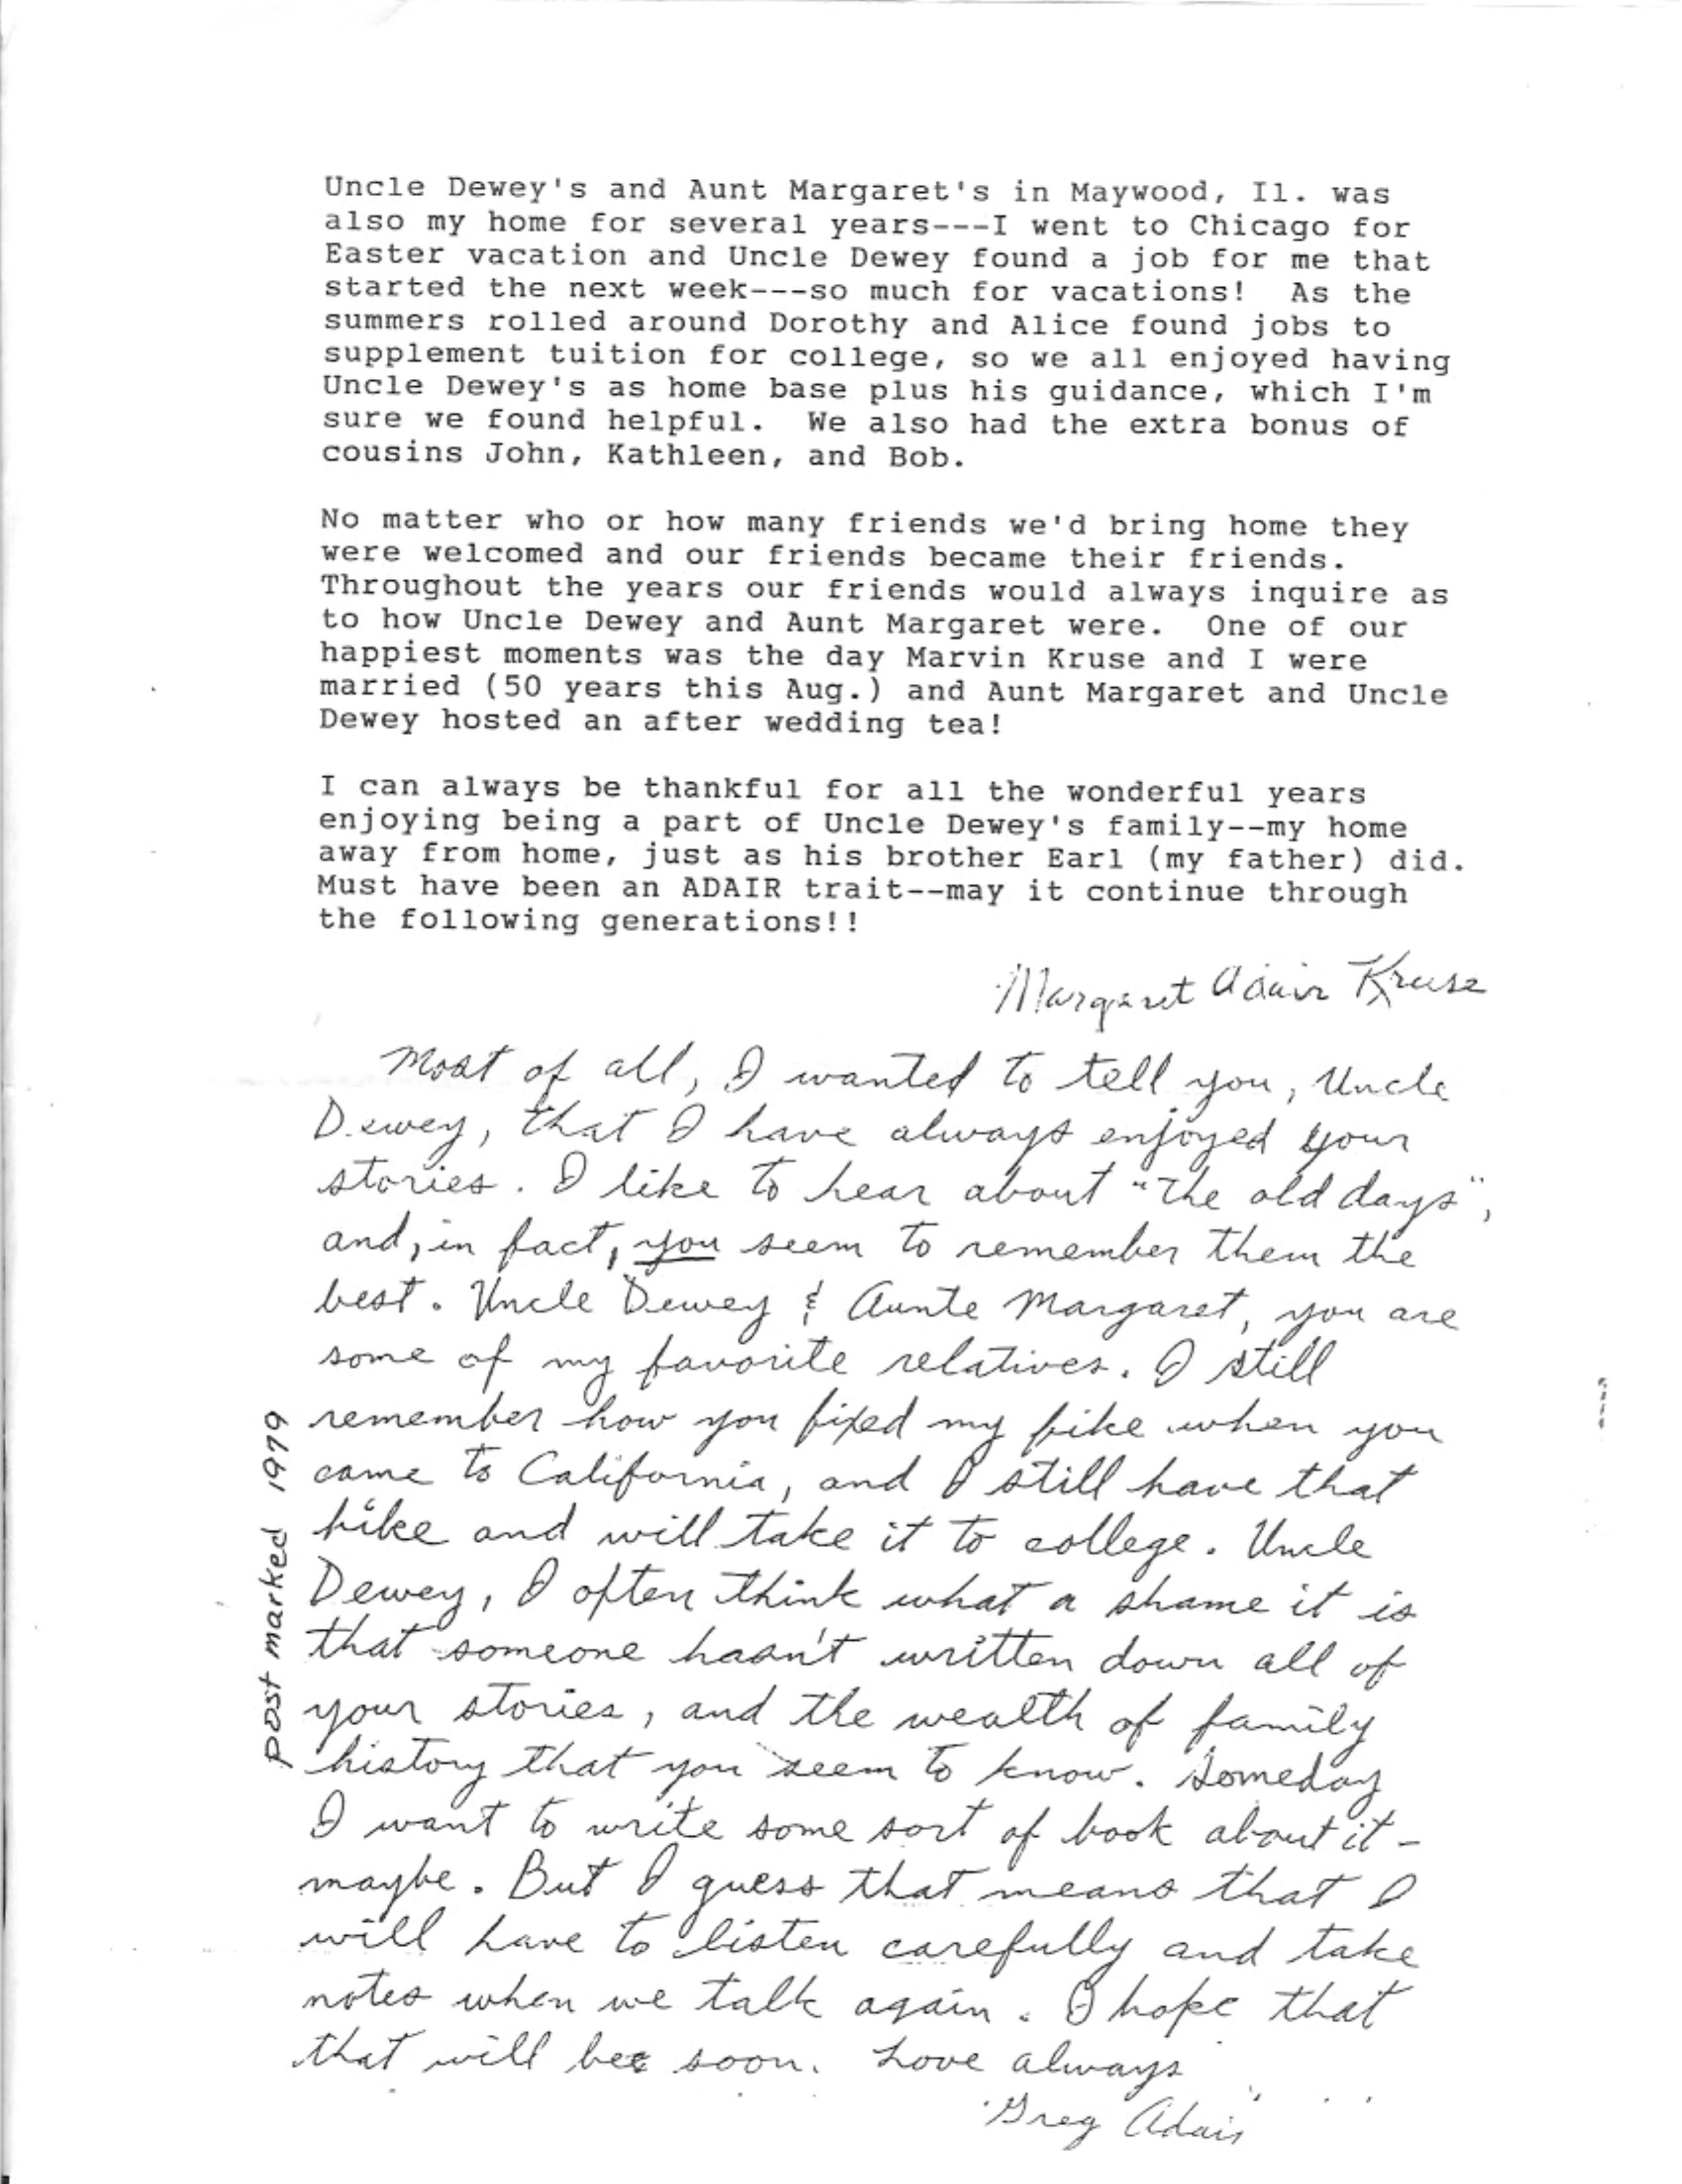 Uncle Dewey's and Aunt Margaret's in Maywood, Il. was
also my home for several years---I went to Chicago for
Easter vacation and Uncle Dewey found a job for me that
started the next week---so much for vacations!  As the
summers rolled around Dorothy and Alice found jobs to
supplement tuition for college, so we all enjoyed having
Uncle Dewey's as home base plus his guidance, which I'm
sure we found helpful.  We also had the extra bonus of
cousins John, Kathleen, and Bob.

No matter who or how many friends we'd bring home they
were welcomed and our friends became their friends.
Throughout the years our friends would always inquire as
to how Uncle Dewey and Aunt Margaret were.  One of our
happiest moments was the day Marvin Kruse and I were
married (50 years this Aug.) and Aunt Margaret and Uncle
Dewey hosted an after wedding tea!

I can always be thankful for all the wonderful years
enjoying being a part of Uncle Dewey's family--my home
away from home, just as his brother Earl (my father) did.
Must have been an ADAIR trait--may it continue through
the following generations!!

Margaret Adair Kruse

Most of all, I wanted to tell you, Uncle
Dewey, that I have always enjoyed your
stories. I like to hear about "the old days",
and, in fact, you seem to remember them the
best. Uncle Dewey & Aunte Margaret, you are
some of my favorite relatives. I still
remember how you fixed my bike when you
came to California, and I still have that
bike and will take it to college. Uncle
Dewey, I often think what a shame it is
that someone hasn't written down all of
your stories, and the wealth of family
history that you seem to know. Someday
I want to write some sort of book about it -
maybe. But I guess that means that I
will have to listen carefully and take
notes when we talk again. I hope that
that will bee soon. Love always
Greg Adair
Post marked 1979